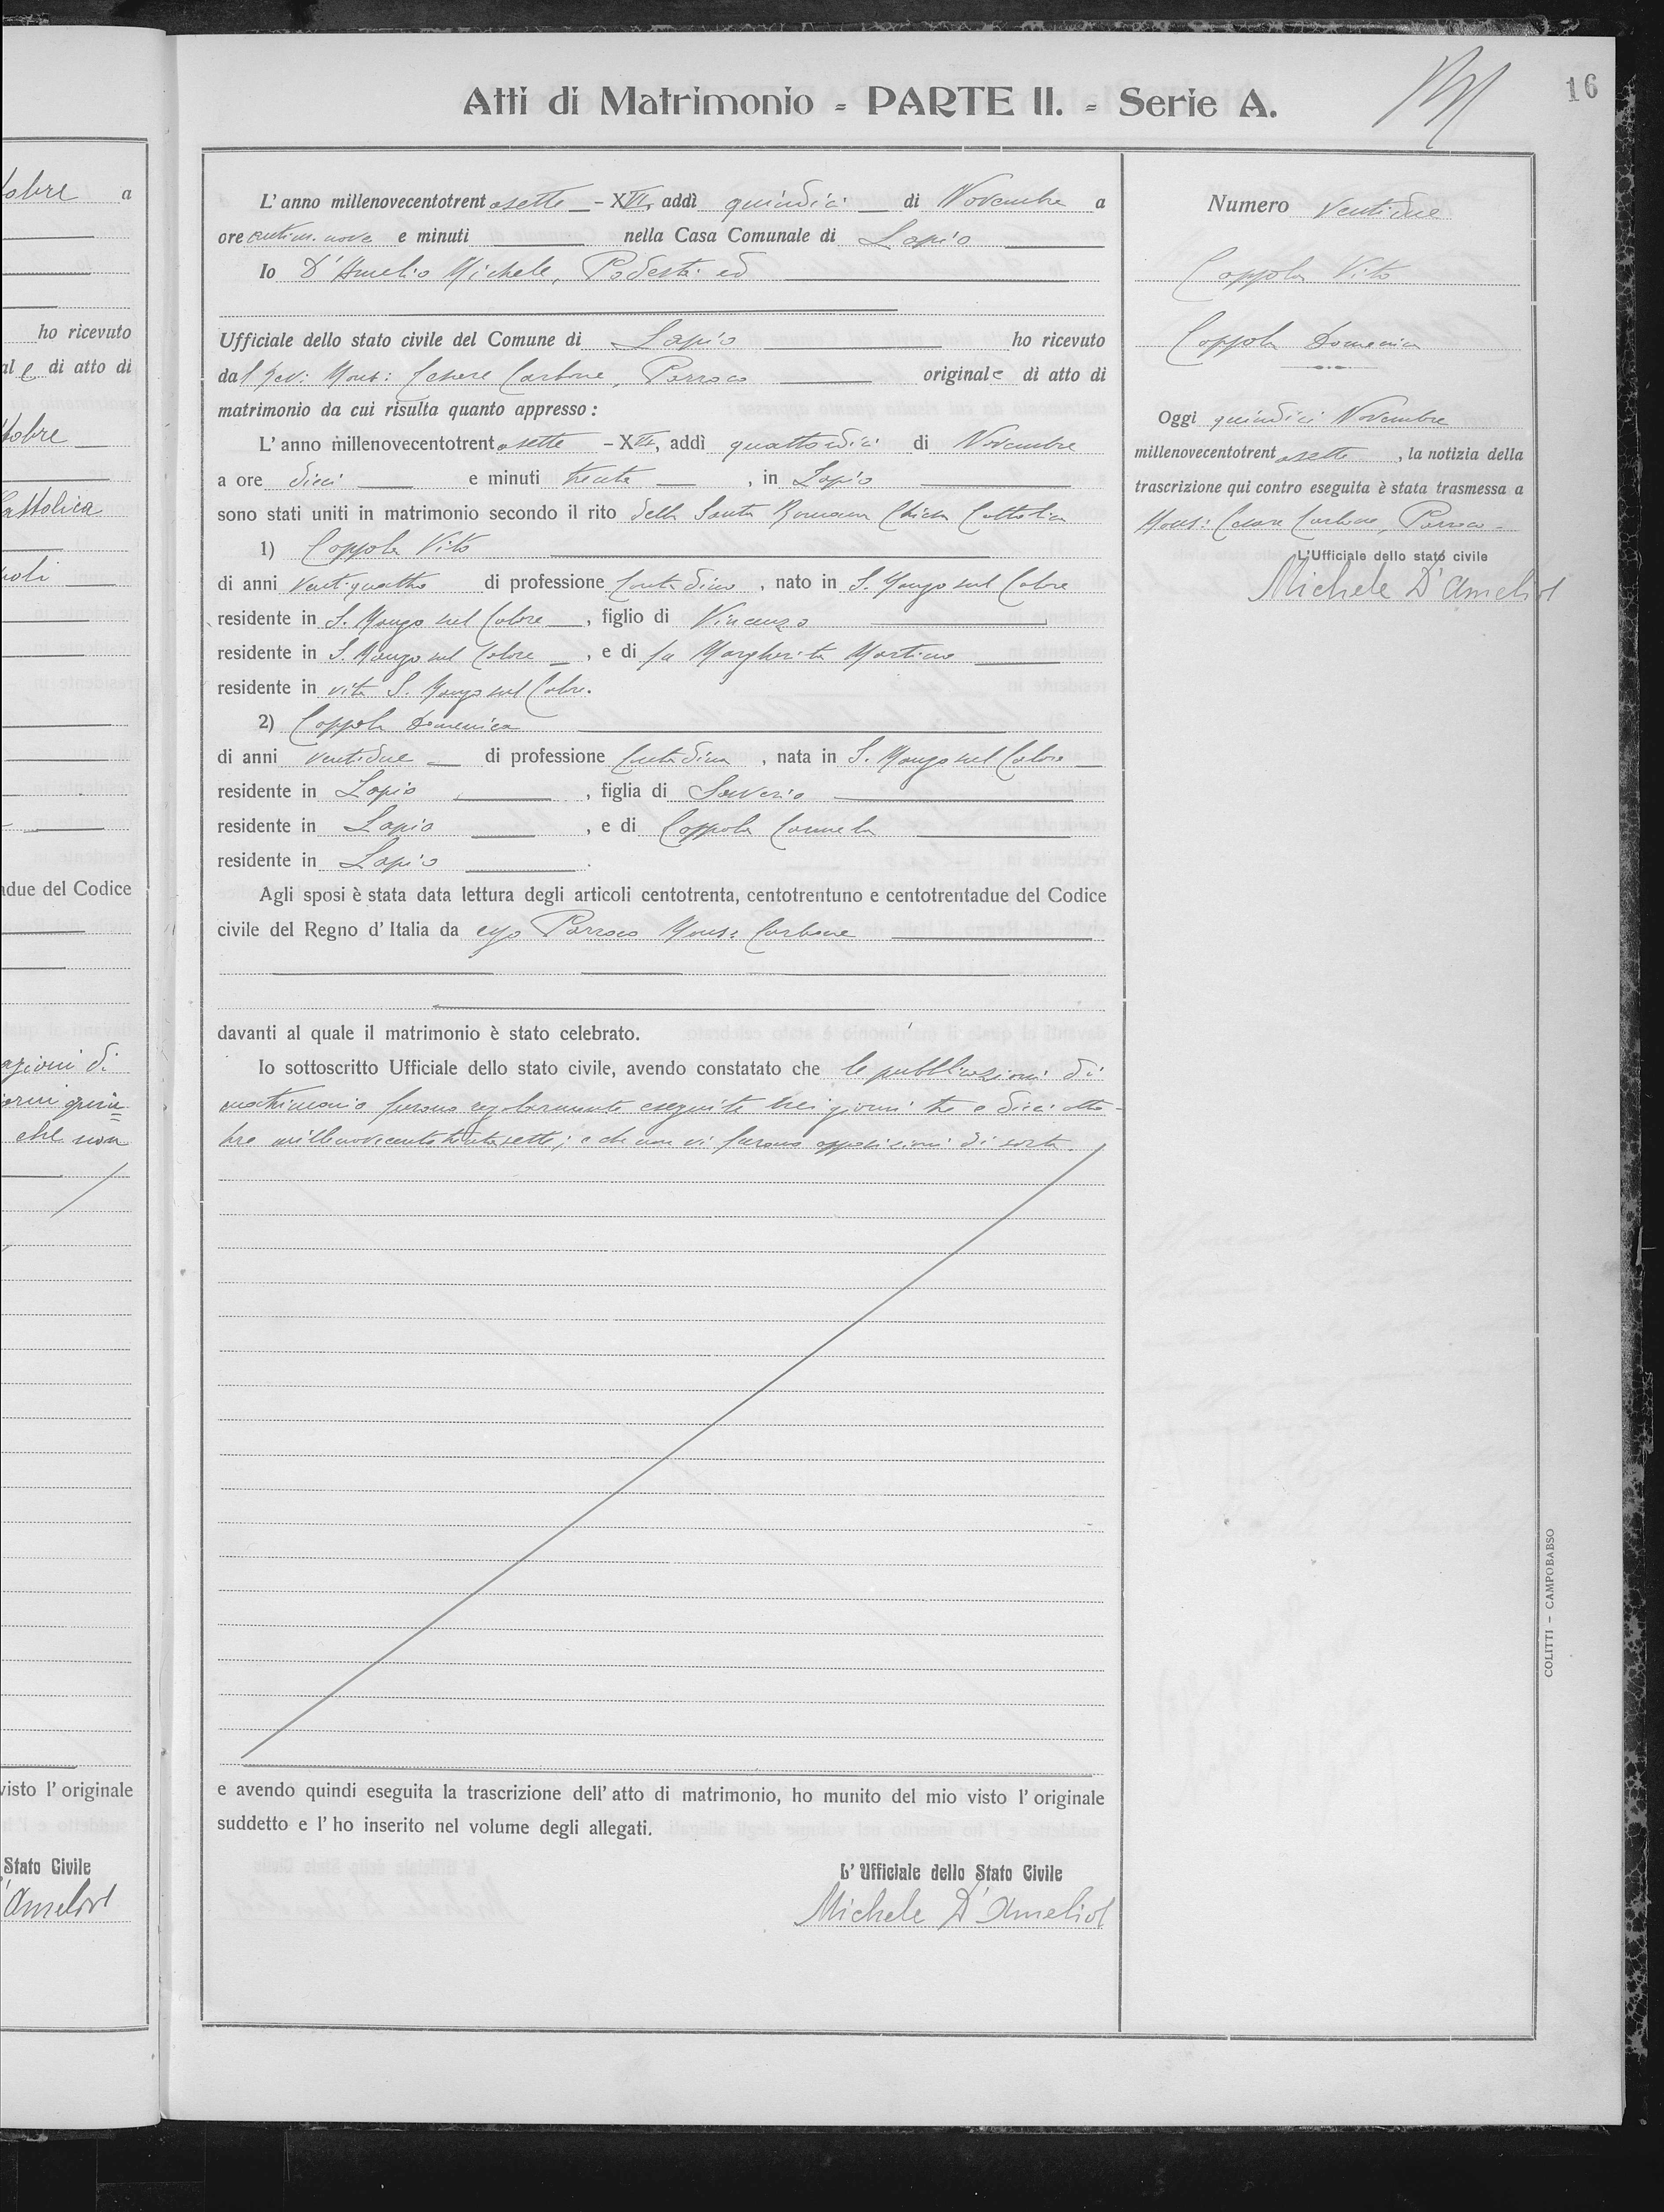 tobre a
ho ricevuto
al e di atto di
tobre
Cattolica
adue del Codice
azioni di
che non
visto l'originale
Stato Civile
D'Ameliol
16
Atti di Matrimonio - PARTE II. - Serie A.
L'anno millenovecentotrentasette - XVI, addì quindici di Novembre a
ore antim. nove e minuti nella Casa Comunale di Lapio
Io D'Amelio Michele, Podestà ed
Ufficiale dello stato civile del Comune di Lapio ho ricevuto
dal Rev: Mons: Cesare Carbone, Parroco originale di atto di
matrimonio da cui risulta quanto appresso:
L'anno millenovecentotrentasette - XVI, addì quattordici di Novembre
a ore dieci e minuti trenta, in Lapio
sono stati uniti in matrimonio secondo il rito della Santa Romana Chiesa Cattolica
1) Coppola Vito
di anni ventiquattro di professione Contadino, nato in S. Mango sul Calore
residente in S. Mango sul Calore, figlio di Vincenzo
residente in S. Mango sul Calore, e di fu Margherita Martino
residente in vita S. Mango sul Calore.
2) Coppola Domenica
di anni ventidue di professione Contadina, nata in S. Mango sul Calore
residente in Lapio, figlia di Saverio
residente in Lapio, e di Coppola Carmela
residente in Lapio.
Agli sposi è stata data lettura degli articoli centotrenta, centotrentuno e centotrentadue del Codice
civile del Regno d'Italia da esso Parroco Mons: Carbone
davanti al quale il matrimonio è stato celebrato.
Io sottoscritto Ufficiale dello stato civile, avendo constatato che le pubblicazioni di
matrimonio furono regolarmente eseguite nei giorni tre e dieci otto-
bre millenovecentotrentasette; e che non vi furono opposizioni di sorta.
e avendo quindi eseguita la trascrizione dell'atto di matrimonio, ho munito del mio visto l'originale
suddetto e l'ho inserito nel volume degli allegati.
L'Ufficiale dello Stato Civile
Michele D'Ameliol
Numero Ventidue
Coppola Vito
Coppola Domenica
Oggi quindici Novembre
millenovecentotrentasette, la notizia della
trascrizione qui contro eseguita è stata trasmessa a
Mons: Cesare Carbone, Parroco -
L'Ufficiale dello stato civile
Michele D'Ameliol
COLITTI - CAMPOBASSO